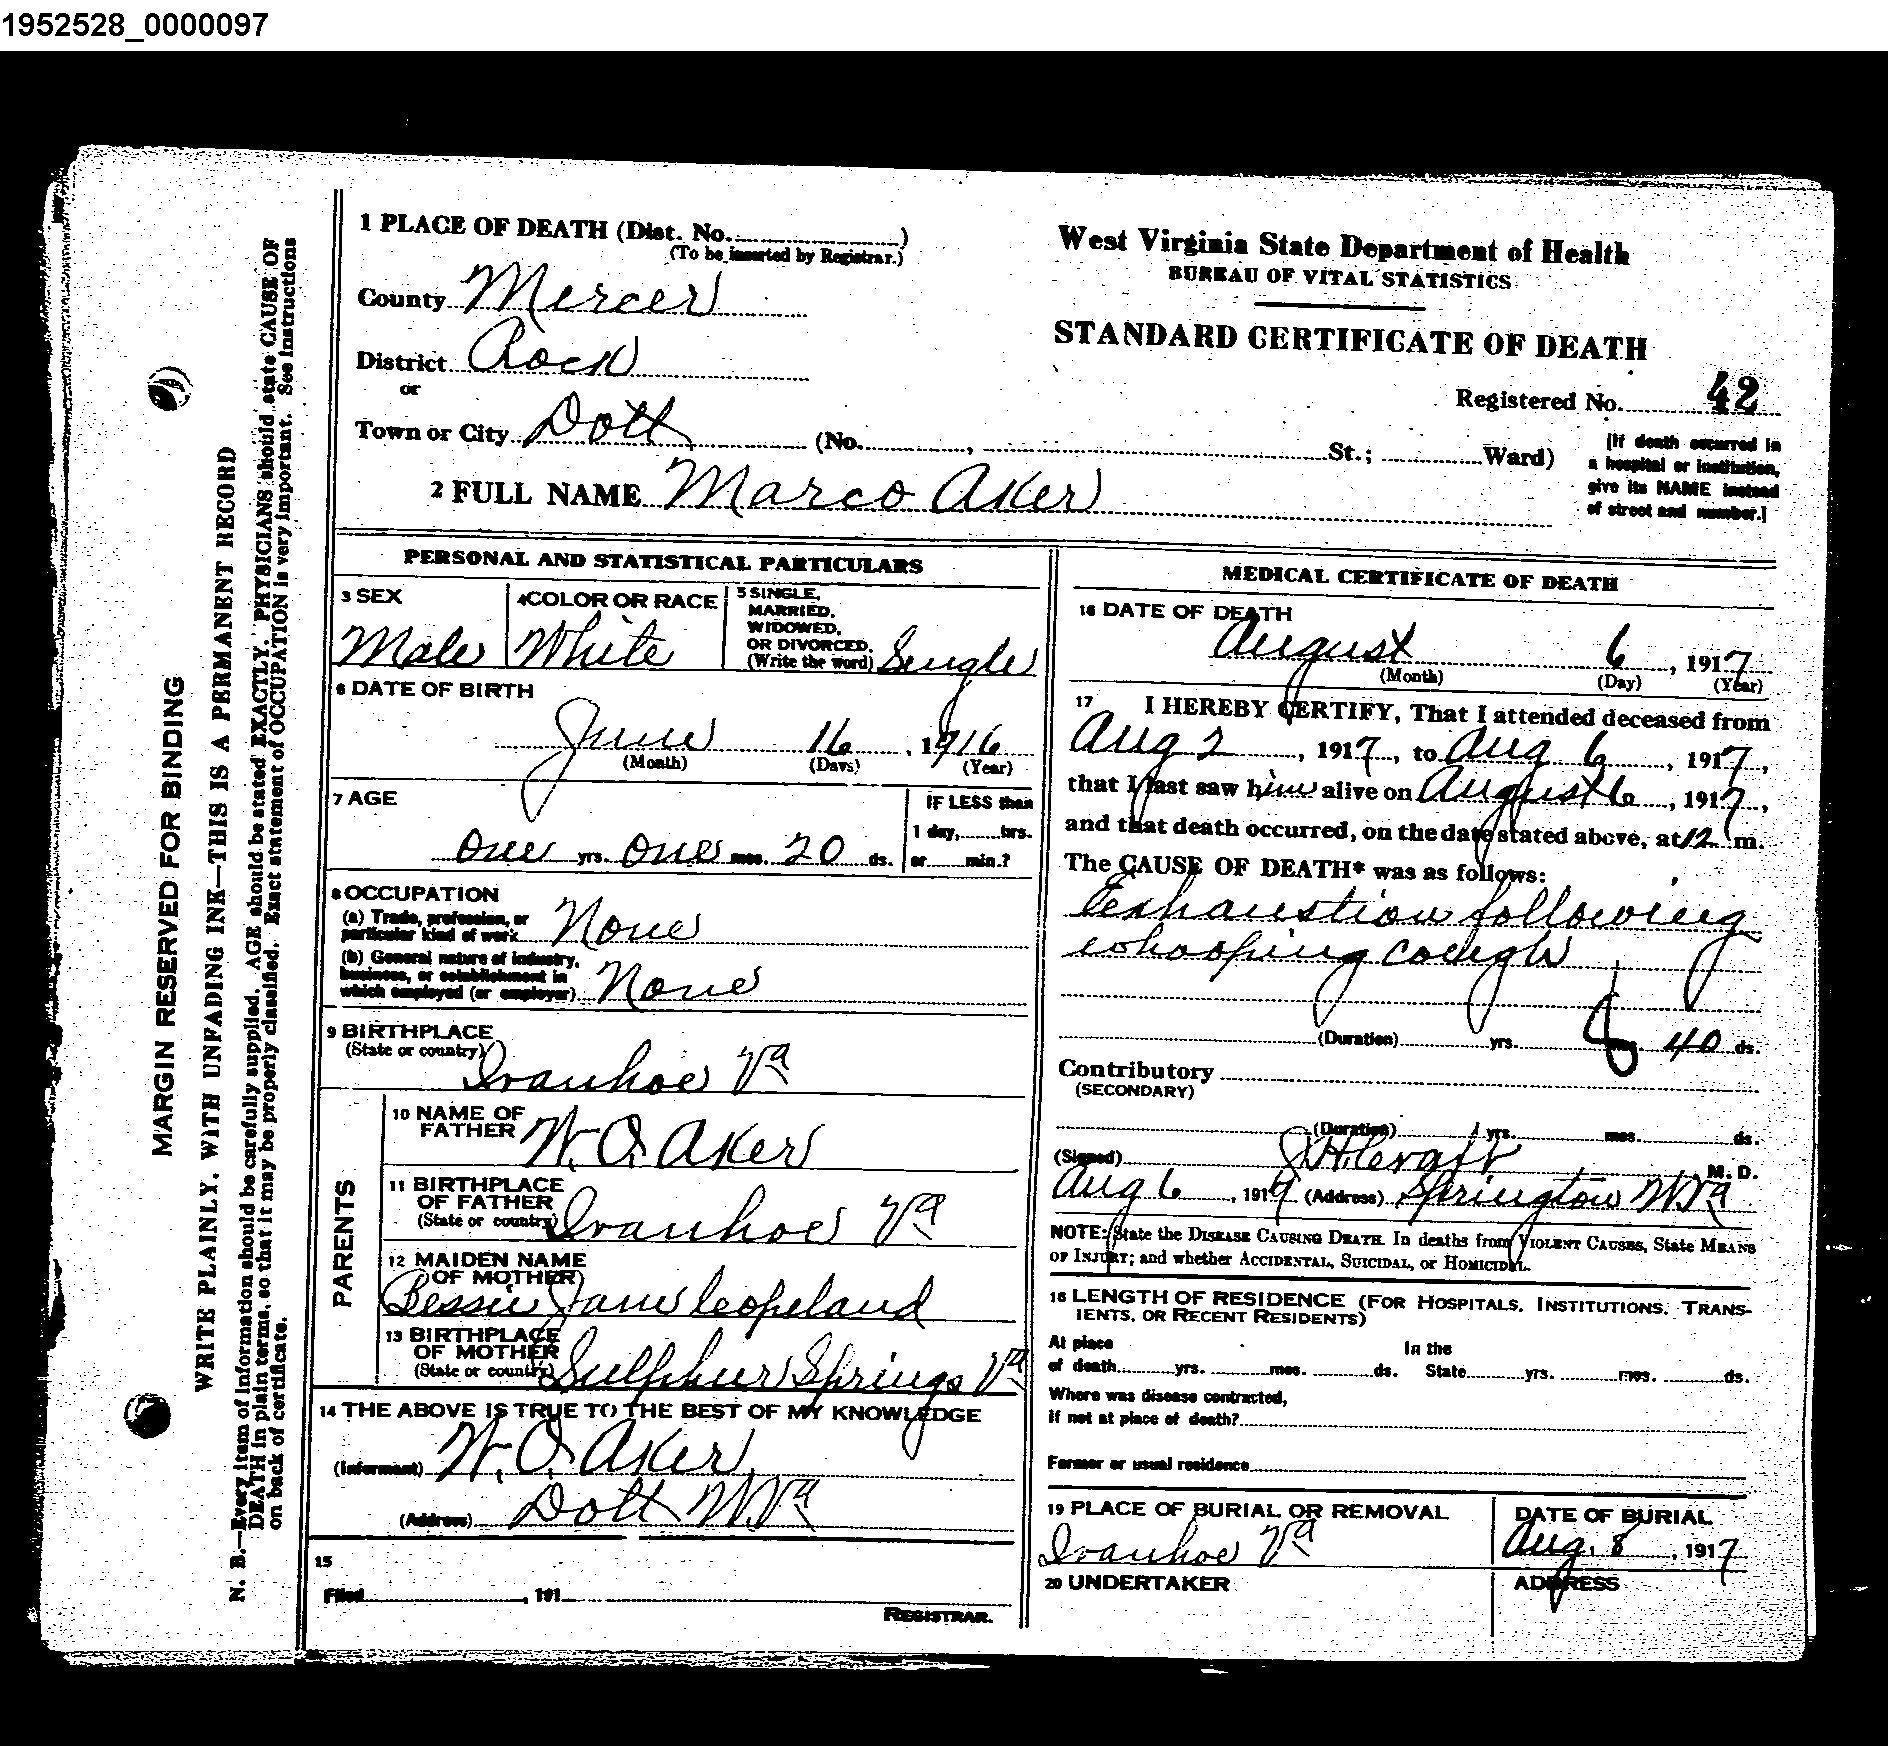 1952528_0000097
MARGIN RESERVED FOR BINDING
WRITE PLAINLY, WITH UNFADING INK—THIS IS A PERMANENT RECORD
N. B.—Every item of information should be carefully supplied. AGE should be stated EXACTLY. PHYSICIANS should state CAUSE OF
DEATH in plain terms, so that it may be properly classified. Exact statement of OCCUPATION is very important. See instructions
on back of certificate.
1 PLACE OF DEATH (Dist. No. )
(To be inserted by Registrar.)
County Mercer
District Rock
or
Town or City Dott (No. , St.; Ward)
2 FULL NAME Marco Aker
West Virginia State Department of Health
BUREAU OF VITAL STATISTICS
STANDARD CERTIFICATE OF DEATH
Registered No. 42
[If death occurred in
a hospital or institution,
give its NAME instead
of street and number.]
PERSONAL AND STATISTICAL PARTICULARS
3 SEX
Male
4 COLOR OR RACE
White
5 SINGLE,
MARRIED,
WIDOWED,
OR DIVORCED.
(Write the word) Single
6 DATE OF BIRTH
June 16, 1916
(Month) (Days) (Year)
7 AGE
one yrs. one mos. 20 ds.
IF LESS than
1 day, hrs.
or min.?
8 OCCUPATION
(a) Trade, profession, or
particular kind of work None
(b) General nature of industry,
business, or establishment in
which employed (or employer) None
9 BIRTHPLACE
(State or country)
Ivanhoe Va
PARENTS
10 NAME OF
FATHER W. O. Aker
11 BIRTHPLACE
OF FATHER
(State or country) Ivanhoe Va
12 MAIDEN NAME
OF MOTHER
Bessie Jane Copeland
13 BIRTHPLACE
OF MOTHER
(State or country) Sulphur Springs Va
14 THE ABOVE IS TRUE TO THE BEST OF MY KNOWLEDGE
(Informant) W. O. Aker
(Address) Dott W. Va
15
Filed , 191
REGISTRAR.
MEDICAL CERTIFICATE OF DEATH
16 DATE OF DEATH
August 6, 1917
(Month) (Day) (Year)
17 I HEREBY CERTIFY, That I attended deceased from
Aug 2, 1917, to Aug 6, 1917,
that I last saw him alive on August 6, 1917,
and that death occurred, on the date stated above, at 12 m.
The CAUSE OF DEATH* was as follows:
Exhaustion following
whooping cough
(Duration) yrs. mos. 40 ds.
Contributory
(SECONDARY)
(Duration) yrs. mos. ds.
(Signed) M. D.
Aug 6, 191 (Address) Springton W. Va
NOTE: State the DISEASE CAUSING DEATH. In deaths from VIOLENT CAUSES, State MEANS
OF INJURY; and whether ACCIDENTAL, SUICIDAL, or HOMICIDAL.
18 LENGTH OF RESIDENCE (FOR HOSPITALS, INSTITUTIONS, TRANS-
IENTS, OR RECENT RESIDENTS)
At place In the
of death yrs. mos. ds. State yrs. mos. ds.
Where was disease contracted,
if not at place of death?
Former or usual residence
19 PLACE OF BURIAL OR REMOVAL
Ivanhoe Va
DATE OF BURIAL
Aug. 8, 1917
20 UNDERTAKER
ADDRESS